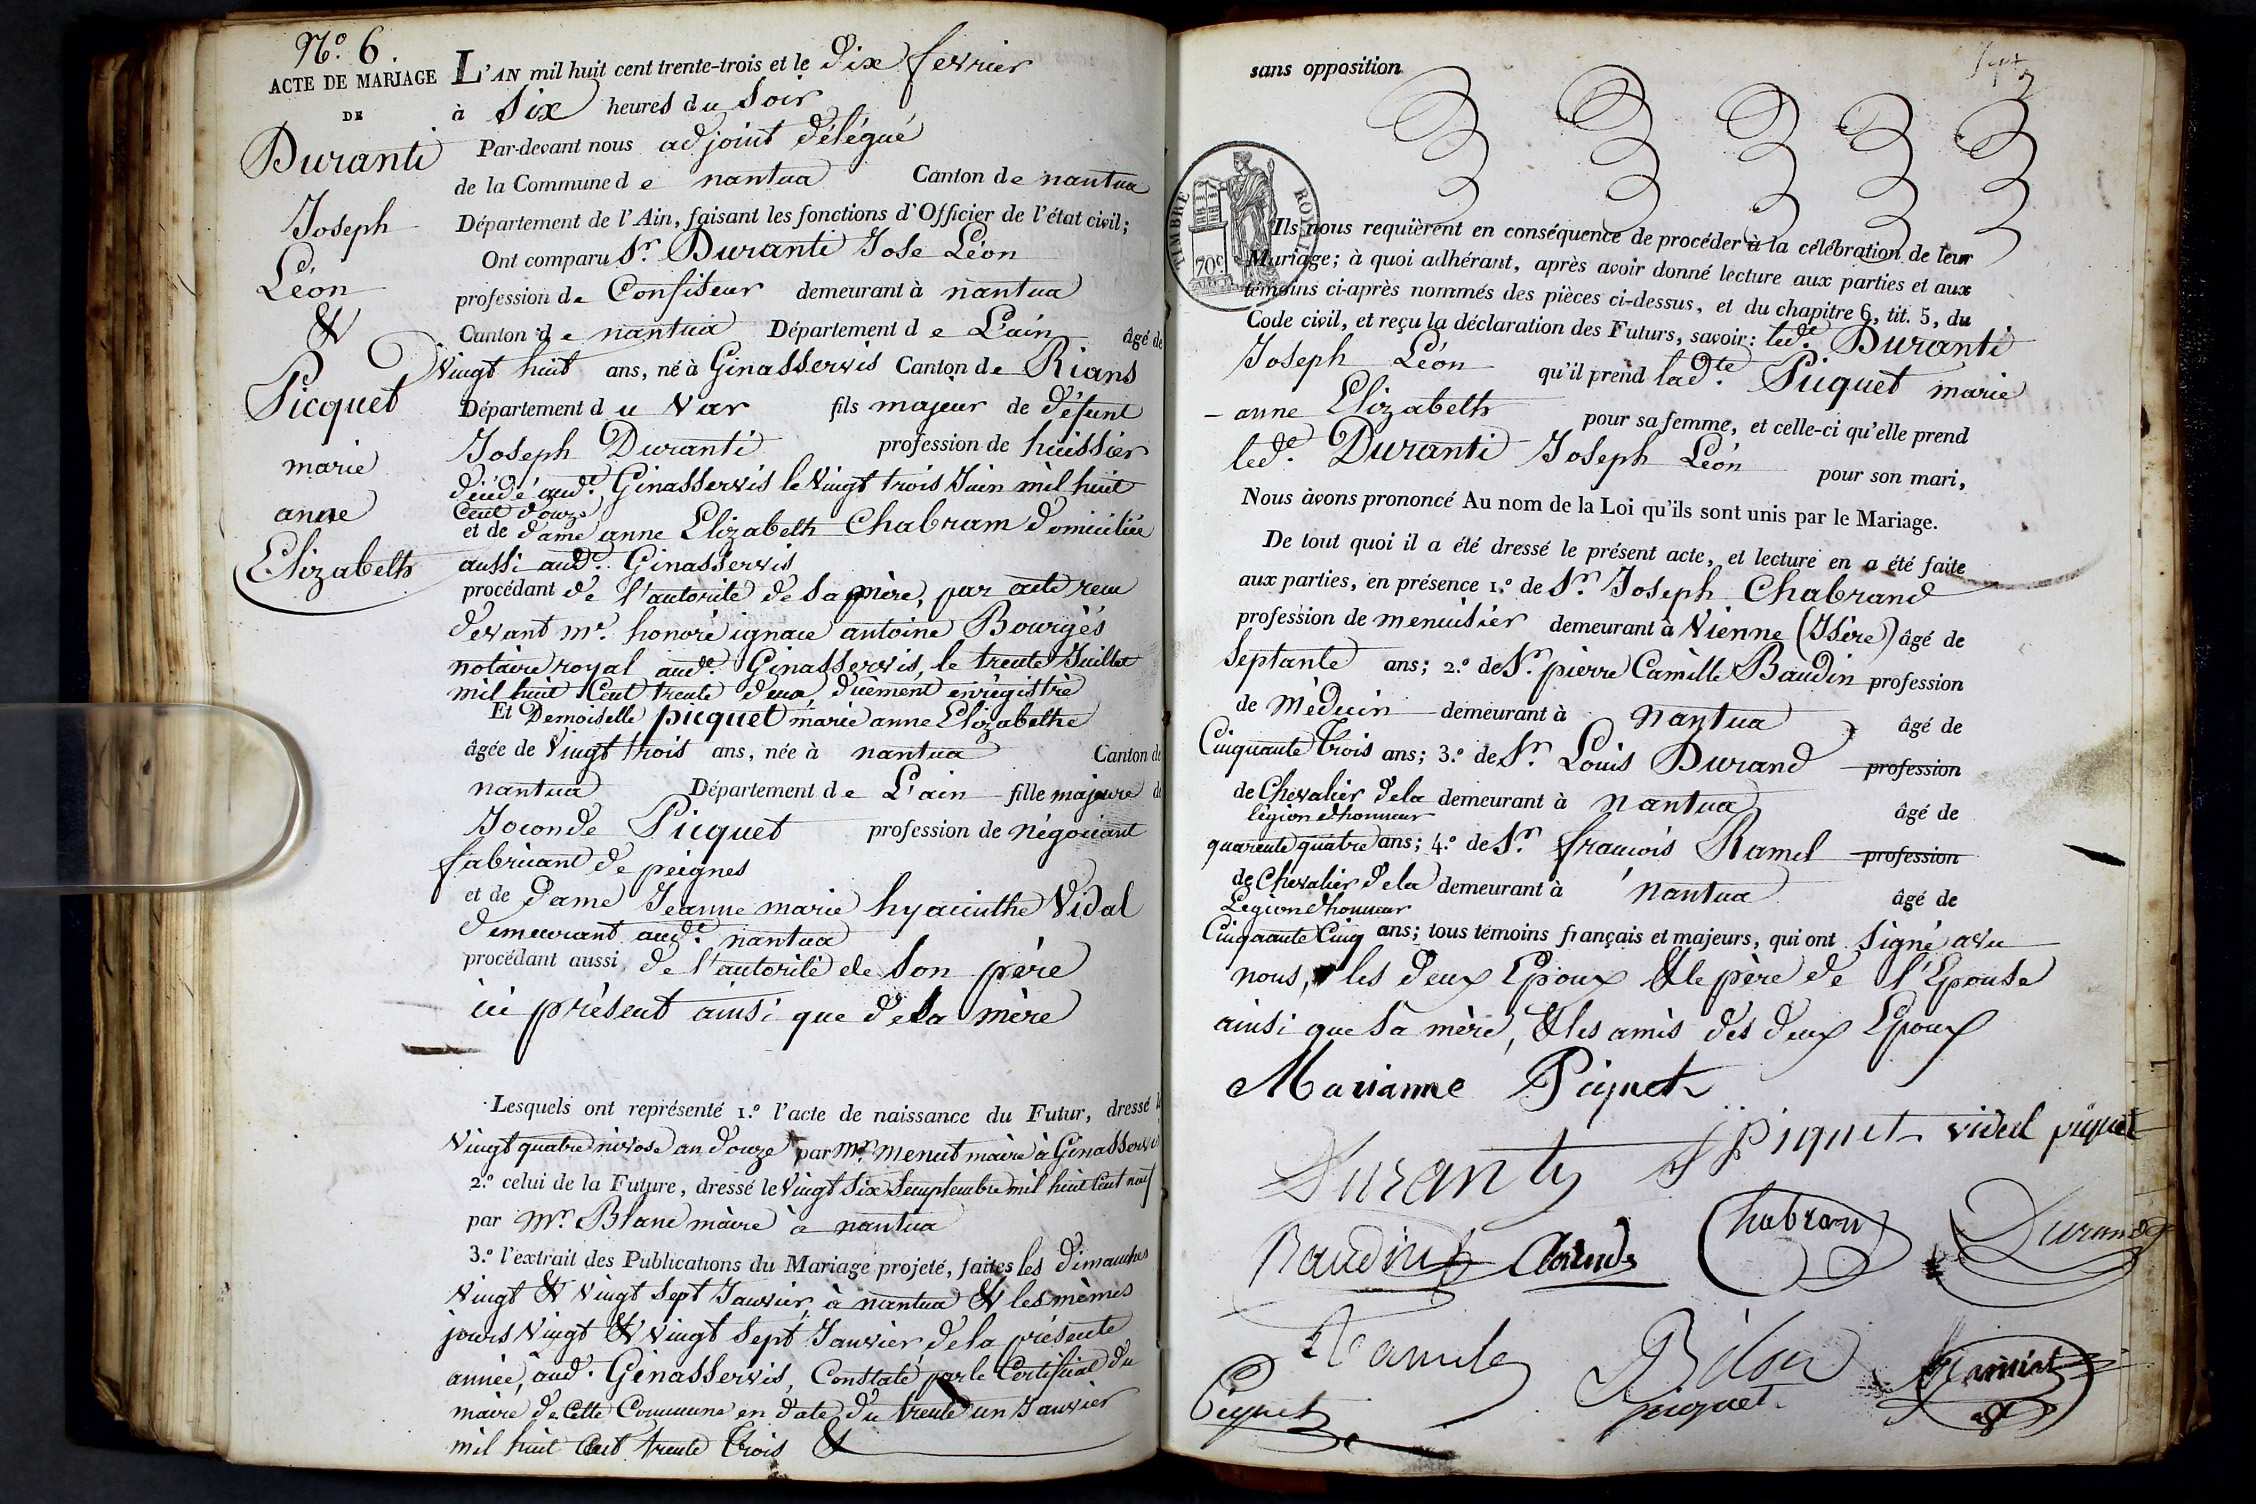 N.º 6.
ACTE DE MARIAGE
DE
Duranti
Joseph
Léon
&
Picquet
marie
anne
Elizabeth
L'AN mil huit cent trente-trois et le dix fevrier
à Six heures du Soir
Par-devant nous adjoint délégué
de la Commune de nantua Canton de nantua
Département de l'Ain, faisant les fonctions d'Officier de l'état civil;
Ont comparu Sr. Duranti Jose Léon
profession de Confiseur demeurant à nantua
Canton de nantua Département de L'ain âgé de
Vingt huit ans, né à Ginasservis Canton de Rians
Département du Var fils majeur de défunt
Joseph Duranti profession de huissier
décédé aud.t Ginasservis le Vingt trois Juin mil huit
Cent douze
et de dame anne Elizabeth Chabram domiciliée
aussi aud.t Ginasservis
procédant de l'autorité de Sa mère, par acte reçu
devant me. honoré ignace antoine Bourgès
notaire royal aud.t Ginasservis, le trente Juillet
mil huit Cent trente deux, duement enregistré
Et Demoiselle picquet marie anne Elizabethe
âgée de Vingt trois ans, née à nantua Canton de
nantua Département de L'ain fille majeure de
Joconde Picquet profession de négociant
fabricant de peignes
et de Dame Jeanne marie hyacinthe Vidal
demeurant aud.t nantua
procédant aussi de l'autorité de Son père
ici présent ainsi que de Sa mère
Lesquels ont représenté 1.º l'acte de naissance du Futur, dressé le
Vingt quatre nivose an douze par Mr. menut maire à Ginasservis
2.º celui de la Future, dressé le Vingt Six Semptembre mil huit Cent neuf
par Mr. Blanc maire à nantua
3.º l'extrait des Publications du Mariage projeté, faites les dimanches
Vingt & Vingt Sept Janvier, à nantua & les mêmes
jours Vingt & Vingt Sept Janvier de la présente
année, aud.t Ginasservis, Constaté par le Certificat du
maire de Cette Commune en date du trente un Janvier
mil huit Cent trente trois &
sans opposition
Sept
7
TIMBRE ROYAL
70c
Ils nous requièrent en conséquence de procéder à la célébration de leur
Mariage; à quoi adhérant, après avoir donné lecture aux parties et aux
témoins ci-après nommés des pièces ci-dessus, et du chapitre 6, tit. 5, du
Code civil, et reçu la déclaration des Futurs, savoir: led.t Duranti
Joseph Léon qu'il prend lad.te Picquet marie
- anne Elizabeth pour sa femme, et celle-ci qu'elle prend
led.t Duranti Joseph Léon pour son mari,
Nous avons prononcé Au nom de la Loi qu'ils sont unis par le Mariage.
De tout quoi il a été dressé le présent acte, et lecture en a été faite
aux parties, en présence 1.º de Sr. Joseph Chabrand
profession de menuisier demeurant à Vienne (Isère) âgé de
Septante ans; 2.º de Sr. pierre Camille Baudin profession
de Médecin demeurant à nantua âgé de
Cinquante trois ans; 3.º de Sr. Louis Durand profession
de Chevalier de la demeurant à nantua âgé de
légion d'honneur
quarente quatre ans; 4.º de Sr. françois Ramel profession
de Chevalier de la demeurant à nantua âgé de
Légion d'honneur
Cinquante Cinq ans; tous témoins français et majeurs, qui ont Signé avec
nous, les deux Epoux & le père de l'Epouse
ainsi que Sa mère, & les amis des deux Epoux
Marianne Piquet
Duranty J Piquet vidal piquet
Baudin Chabran Durand
Ramel
Piquet picquet